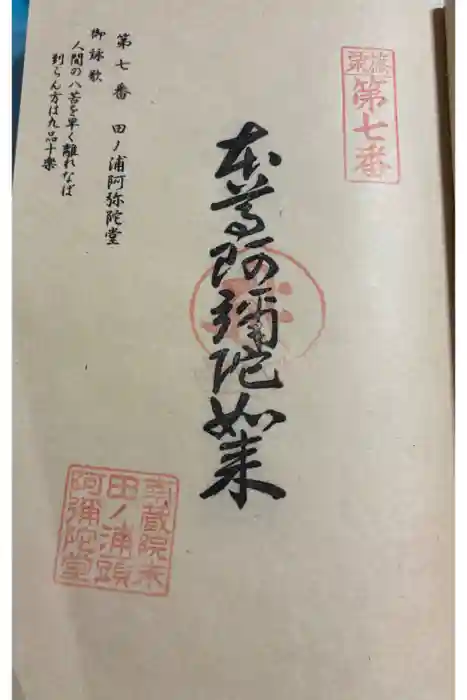 篠栗
第七番
本尊阿彌陀如来
第七番 田ノ浦阿弥陀堂
御詠歌
人間の八苦を早く離れなば
到らん方は九品十楽
南蔵院末
田ノ浦
阿彌陀堂